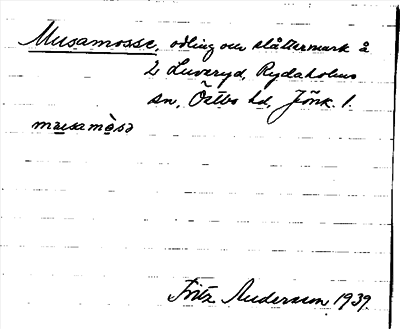 Musamosse, odling och slåttermark å
2 Luveryd, Rydaholms
sn, Östbo hd, Jönk. l.
musamòsə
Fritz Andersson 1939.